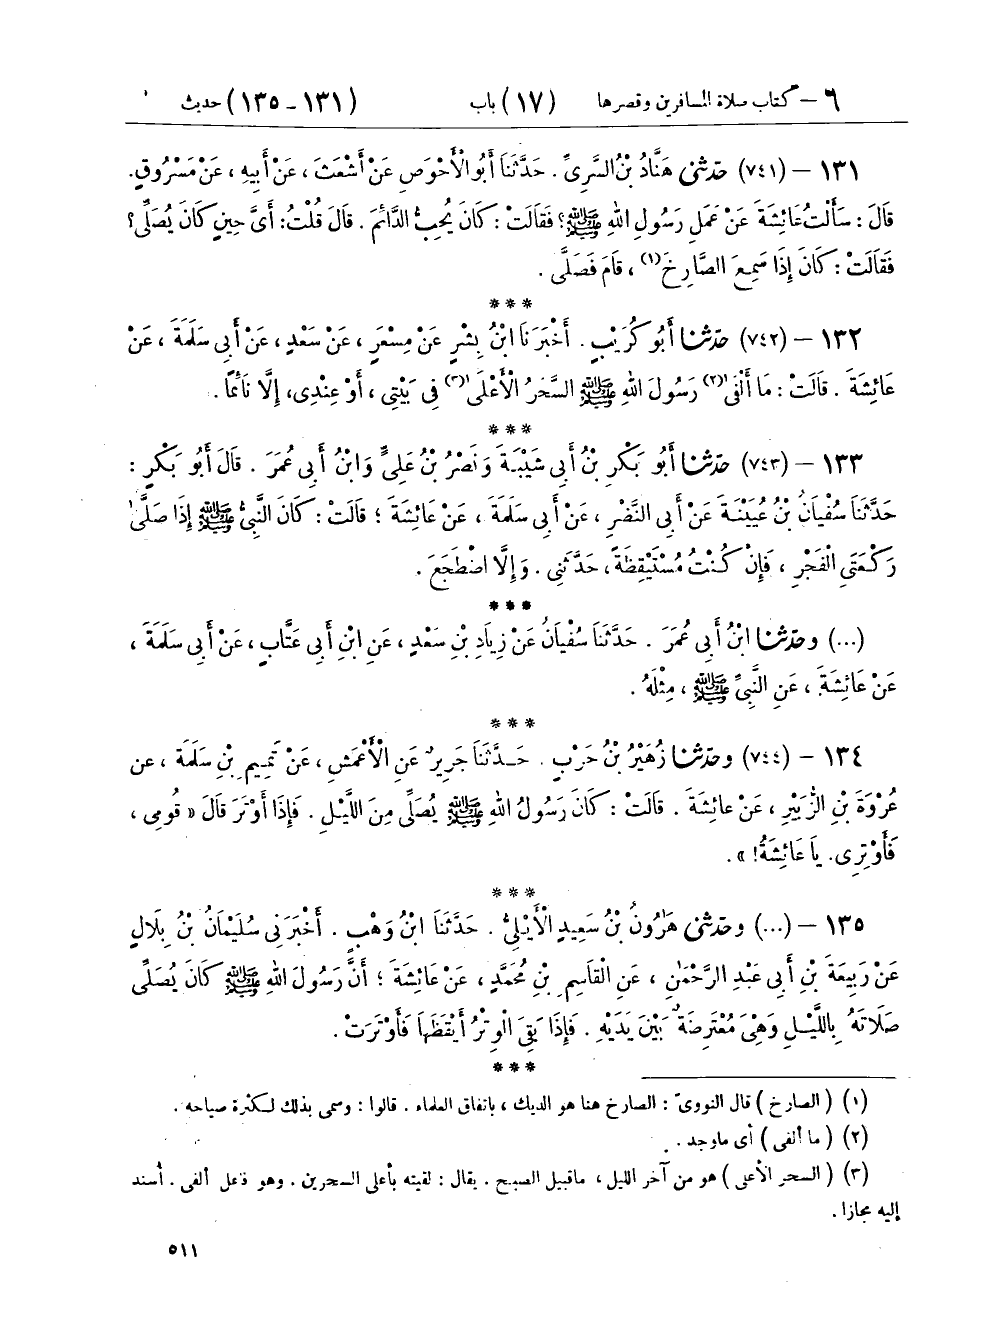 ٦ – كتاب صلاة المسافرين وقصرها (١٧) باب (١٣١ – ١٣٥) حديث
١٣١ – (٧٤١) حَدَّثَنِي هَنَّادُ بْنُ السَّرِيِّ . حَدَّثَنَا أَبُو الْأَحْوَصِ عَنْ أَشْعَثَ ، عَنْ أَبِيهِ ، عَنْ مَسْرُوقٍ.
قَالَ : سَأَلْتُ عَائِشَةَ عَنْ عَمَلِ رَسُولِ اللهِ ﷺ؟ فَقَالَتْ : كَانَ يُحِبُّ الدَّائِمَ . قَالَ قُلْتُ : أَيَّ حِينٍ كَانَ يُصَلِّي؟
فَقَالَتْ : كَانَ إِذَا سَمِعَ الصَّارِخَ(١) ، قَامَ فَصَلَّى .
***
١٣٢ – (٧٤٢) حَدَّثَنَا أَبُو كُرَيْبٍ . أَخْبَرَنَا ابْنُ بِشْرٍ عَنْ مِسْعَرٍ ، عَنْ سَعْدٍ ، عَنْ أَبِي سَلَمَةَ ، عَنْ
عَائِشَةَ . قَالَتْ : مَا أَلْفَى(٢) رَسُولَ اللهِ ﷺ السَّحَرُ الْأَعْلَى(٣) فِي بَيْتِي ، أَوْ عِنْدِي، إِلَّا نَائِمًا .
***
١٣٣ – (٧٤٣) حَدَّثَنَا أَبُو بَكْرِ بْنُ أَبِي شَيْبَةَ وَنَصْرُ بْنُ عَلِيٍّ وَابْنُ أَبِي عُمَرَ . قَالَ أَبُو بَكْرٍ :
حَدَّثَنَا سُفْيَانُ بْنُ عُيَيْنَةَ عَنْ أَبِي النَّضْرِ ، عَنْ أَبِي سَلَمَةَ ، عَنْ عَائِشَةَ ؛ قَالَتْ : كَانَ النَّبِيُّ ﷺ إِذَا صَلَّى
رَكْعَتَيِ الْفَجْرِ ، فَإِنْ كُنْتُ مُسْتَيْقِظَةً ، حَدَّثَنِي . وَإِلَّا اضْطَجَعَ .
***
(...) وَحَدَّثَنَا ابْنُ أَبِي عُمَرَ . حَدَّثَنَا سُفْيَانُ عَنْ زِيَادِ بْنِ سَعْدٍ ، عَنِ ابْنِ أَبِي عَتَّابٍ ، عَنْ أَبِي سَلَمَةَ ،
عَنْ عَائِشَةَ ، عَنِ النَّبِيِّ ﷺ ، مِثْلَهُ .
***
١٣٤ – (٧٤٤) وَحَدَّثَنَا زُهَيْرُ بْنُ حَرْبٍ . حَدَّثَنَا جَرِيرٌ عَنِ الْأَعْمَشِ ، عَنْ تَمِيمِ بْنِ سَلَمَةَ ، عن
عُرْوَةَ بْنِ الزُّبَيْرِ ، عَنْ عَائِشَةَ . قَالَتْ : كَانَ رَسُولُ اللهِ ﷺ يُصَلِّي مِنَ اللَّيْلِ . فَإِذَا أَوْتَرَ قَالَ « قُومِي ،
فَأَوْتِرِي. يَا عَائِشَةُ! » .
***
١٣٥ – (...) وَحَدَّثَنِي هٰرُونُ بْنُ سَعِيدٍ الْأَيْلِيُّ . حَدَّثَنَا ابْنُ وَهْبٍ . أَخْبَرَنِي سُلَيْمَانُ بْنُ بِلَالٍ
عَنْ رَبِيعَةَ بْنِ أَبِي عَبْدِ الرَّحْمٰنِ ، عَنِ الْقَاسِمِ بْنِ مُحَمَّدٍ ، عَنْ عَائِشَةَ ؛ أَنَّ رَسُولَ اللهِ ﷺ كَانَ يُصَلِّي
صَلَاتَهُ بِاللَّيْلِ وَهِيَ مُعْتَرِضَةٌ بَيْنَ يَدَيْهِ . فَإِذَا بَقِيَ الْوِتْرُ أَيْقَظَهَا فَأَوْتَرَتْ .
***
(١) ( الصارخ ) قال النوويّ : الصارخ هنا هو الديك ، باتفاق العلماء . قالوا : وسمى بذلك لكثرة صياحه .
(٢) ( ما ألفى ) أى ماوجد .
(٣) ( السحر الأعلى ) هو من آخر الليل ، ماقبيل الصبح . يقال : لقيته بأعلى السحرين . وهو فاعل ألفى . أسند
إليه مجازا .
٥١١